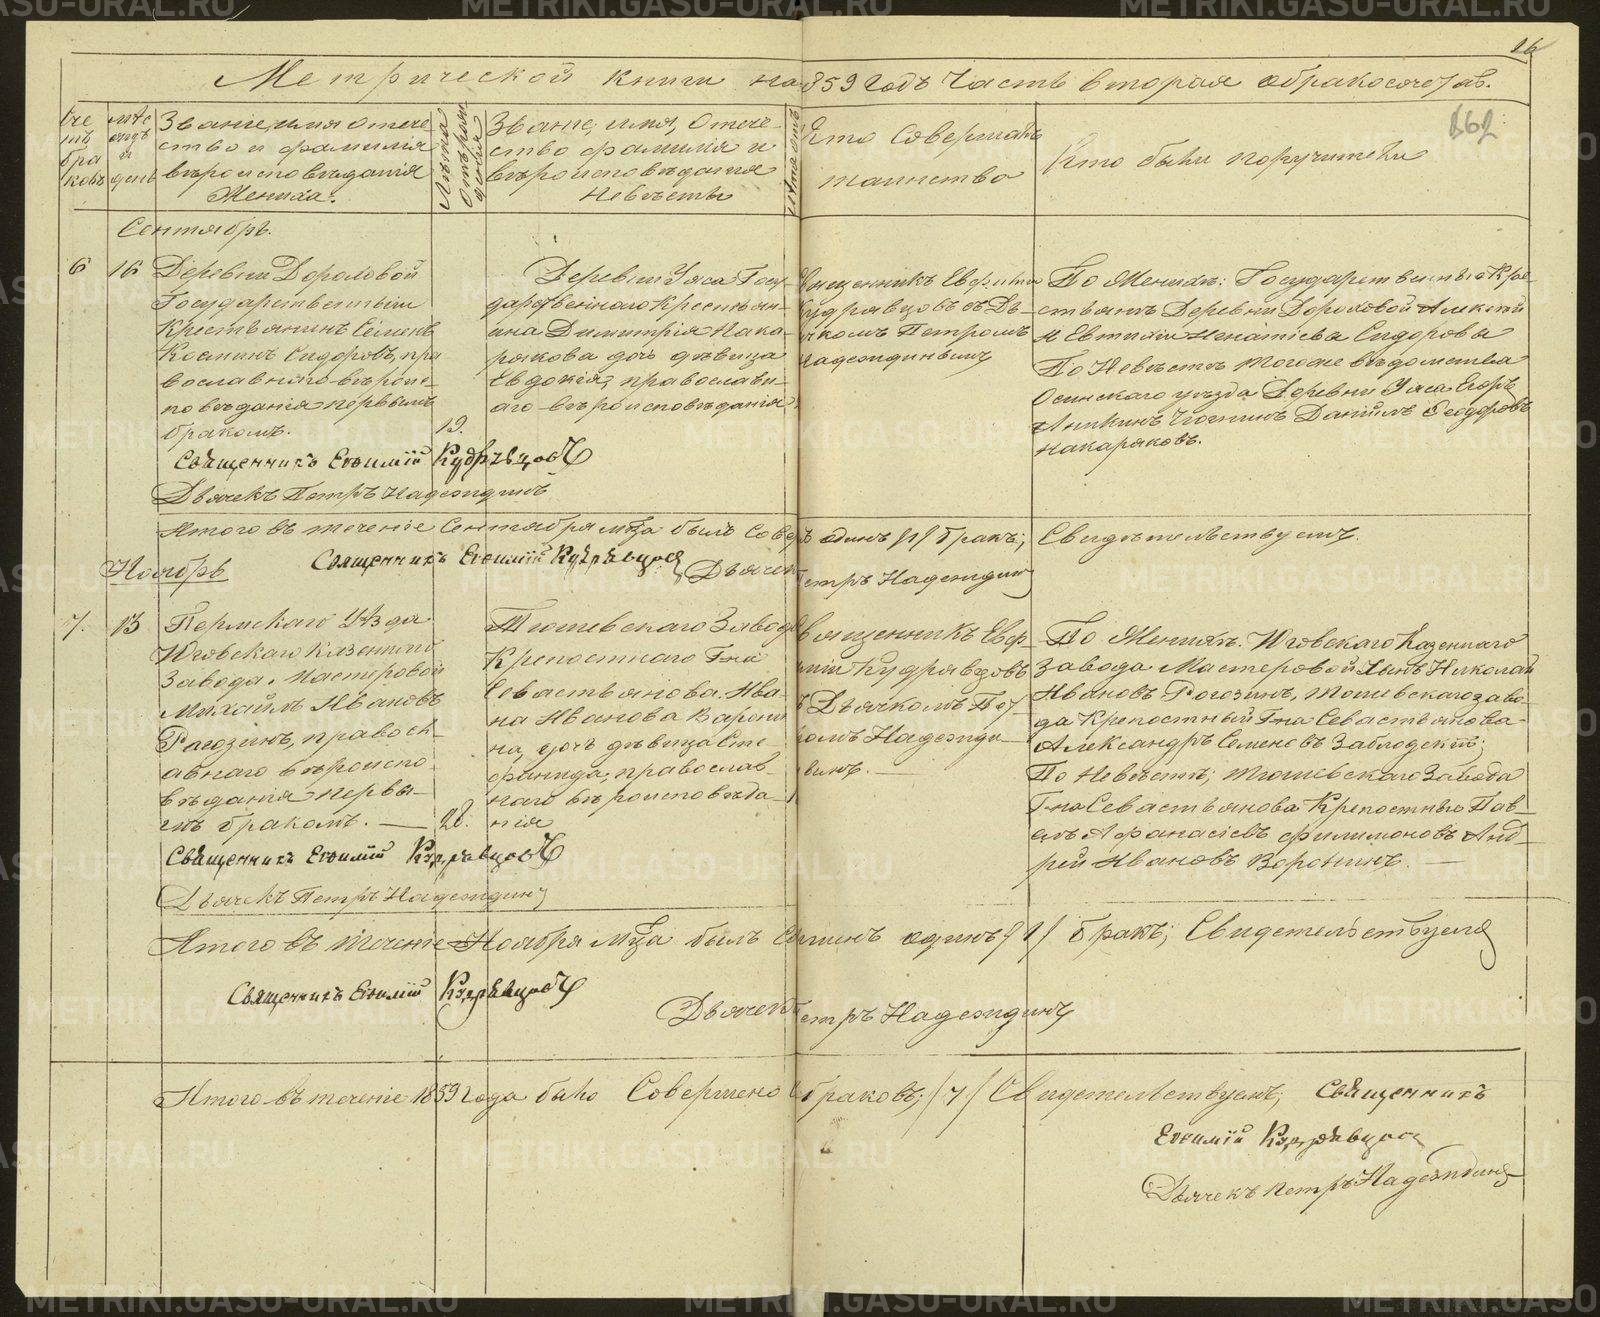 26
Метрической книги на 859 годъ Часть вторая о бракосочетав.
162
Сче
тъ
бра
ковъ
Мѣс
яцъ
и
день
Званіе, имя отече
ство и фамилія
вѣроисповѣданія
Жениха.
Лѣта
Званіе, имя, отече-
ство фамилія и
вѣроисповѣданія
Невѣсты
Кто Совершалъ
таинство
Кто были поручители
Сентябрь.
6
16
Деревни
Государственный
Крестьянинъ Семенъ
Козминъ Сидоровъ, пра-
вославнаго вѣроис-
повѣданія первымъ
бракомъ.
19.
Деревни Уяса Госу-
дарственнаго крестьян-
ина Димитрія Нака-
рякова дочь дѣвица
Евдокія, православн-
аго вѣроисповѣданія
Священникъ Евфимій
Кудрявцовъ съ Дь-
ячкомъ Петромъ
Надеждинымъ
По Женихѣ: Государственные Кре-
стьяне Деревни Алексѣй
и Евтихій Игнатіева Сидоровы
По Невѣстѣ того же вѣдомства
Осинскаго уѣзда Деревни Уяса Егоръ
Даніилъ Ѳеодоровъ
Накаряковъ.
Священникъ Евѳимій Кудрявцовъ
Дьячекъ Петръ Надеждинъ
Итого въ теченіе Сентября мѣца былъ Совер. одинъ /1/ бракъ; Свидѣтельствуемъ.
Священникъ Евѳимій Кудрявцовъ Дьячекъ Петръ Надеждинъ
Ноябрь
7.
13
Пермскаго Уѣзда
Юговскаго казеннаго
Завода. Мастеровой
Михаилъ Ивановъ
Рогозинъ, правосл-
авнаго вѣроиспо-
вѣданія первы-
мъ бракомъ.
20.
Тюшевскаго Завода
Крепостнаго Г-на
Севастьянова. Ива-
на Иванова Ворони-
на, дочь дѣвица Сте-
фанида, православ-
наго вѣроисповѣда-
нія
Священникъ Евф-
имій Кудрявцовъ
съ Дьячкомъ Пет-
ромъ Надежди-
нымъ.
По Женихѣ. Юговскаго Казеннаго
Завода Мастеровой Сынъ Николай
Ивановъ Рогозинъ, Тюшевскаго заво-
да Крепостный Г-на Севастьянова
Александръ Семеновъ Заблодскій;
По Невѣстѣ; Тюшевскаго Завода
Г-на Севастьянова Крепостные Пав-
елъ Афанасіевъ Филимоновъ Анд-
рей Ивановъ Воронинъ.
Священникъ Евѳимій Кудрявцовъ
Дьячекъ Петръ Надеждинъ
Итого въ теченіе Ноября мѣца былъ одинъ /1/ бракъ; Свидетельствуемъ
Священникъ Евѳимій Кудрявцовъ
Дьячекъ Петръ Надеждинъ
Итого въ теченіе 1859 года было Совершено браковъ; /7/ Свидетельствуемъ; Священникъ
Евѳимій Кудрявцовъ
Дьячекъ Петръ Надеждинъ
METRIKI.GASO-URAL.RU